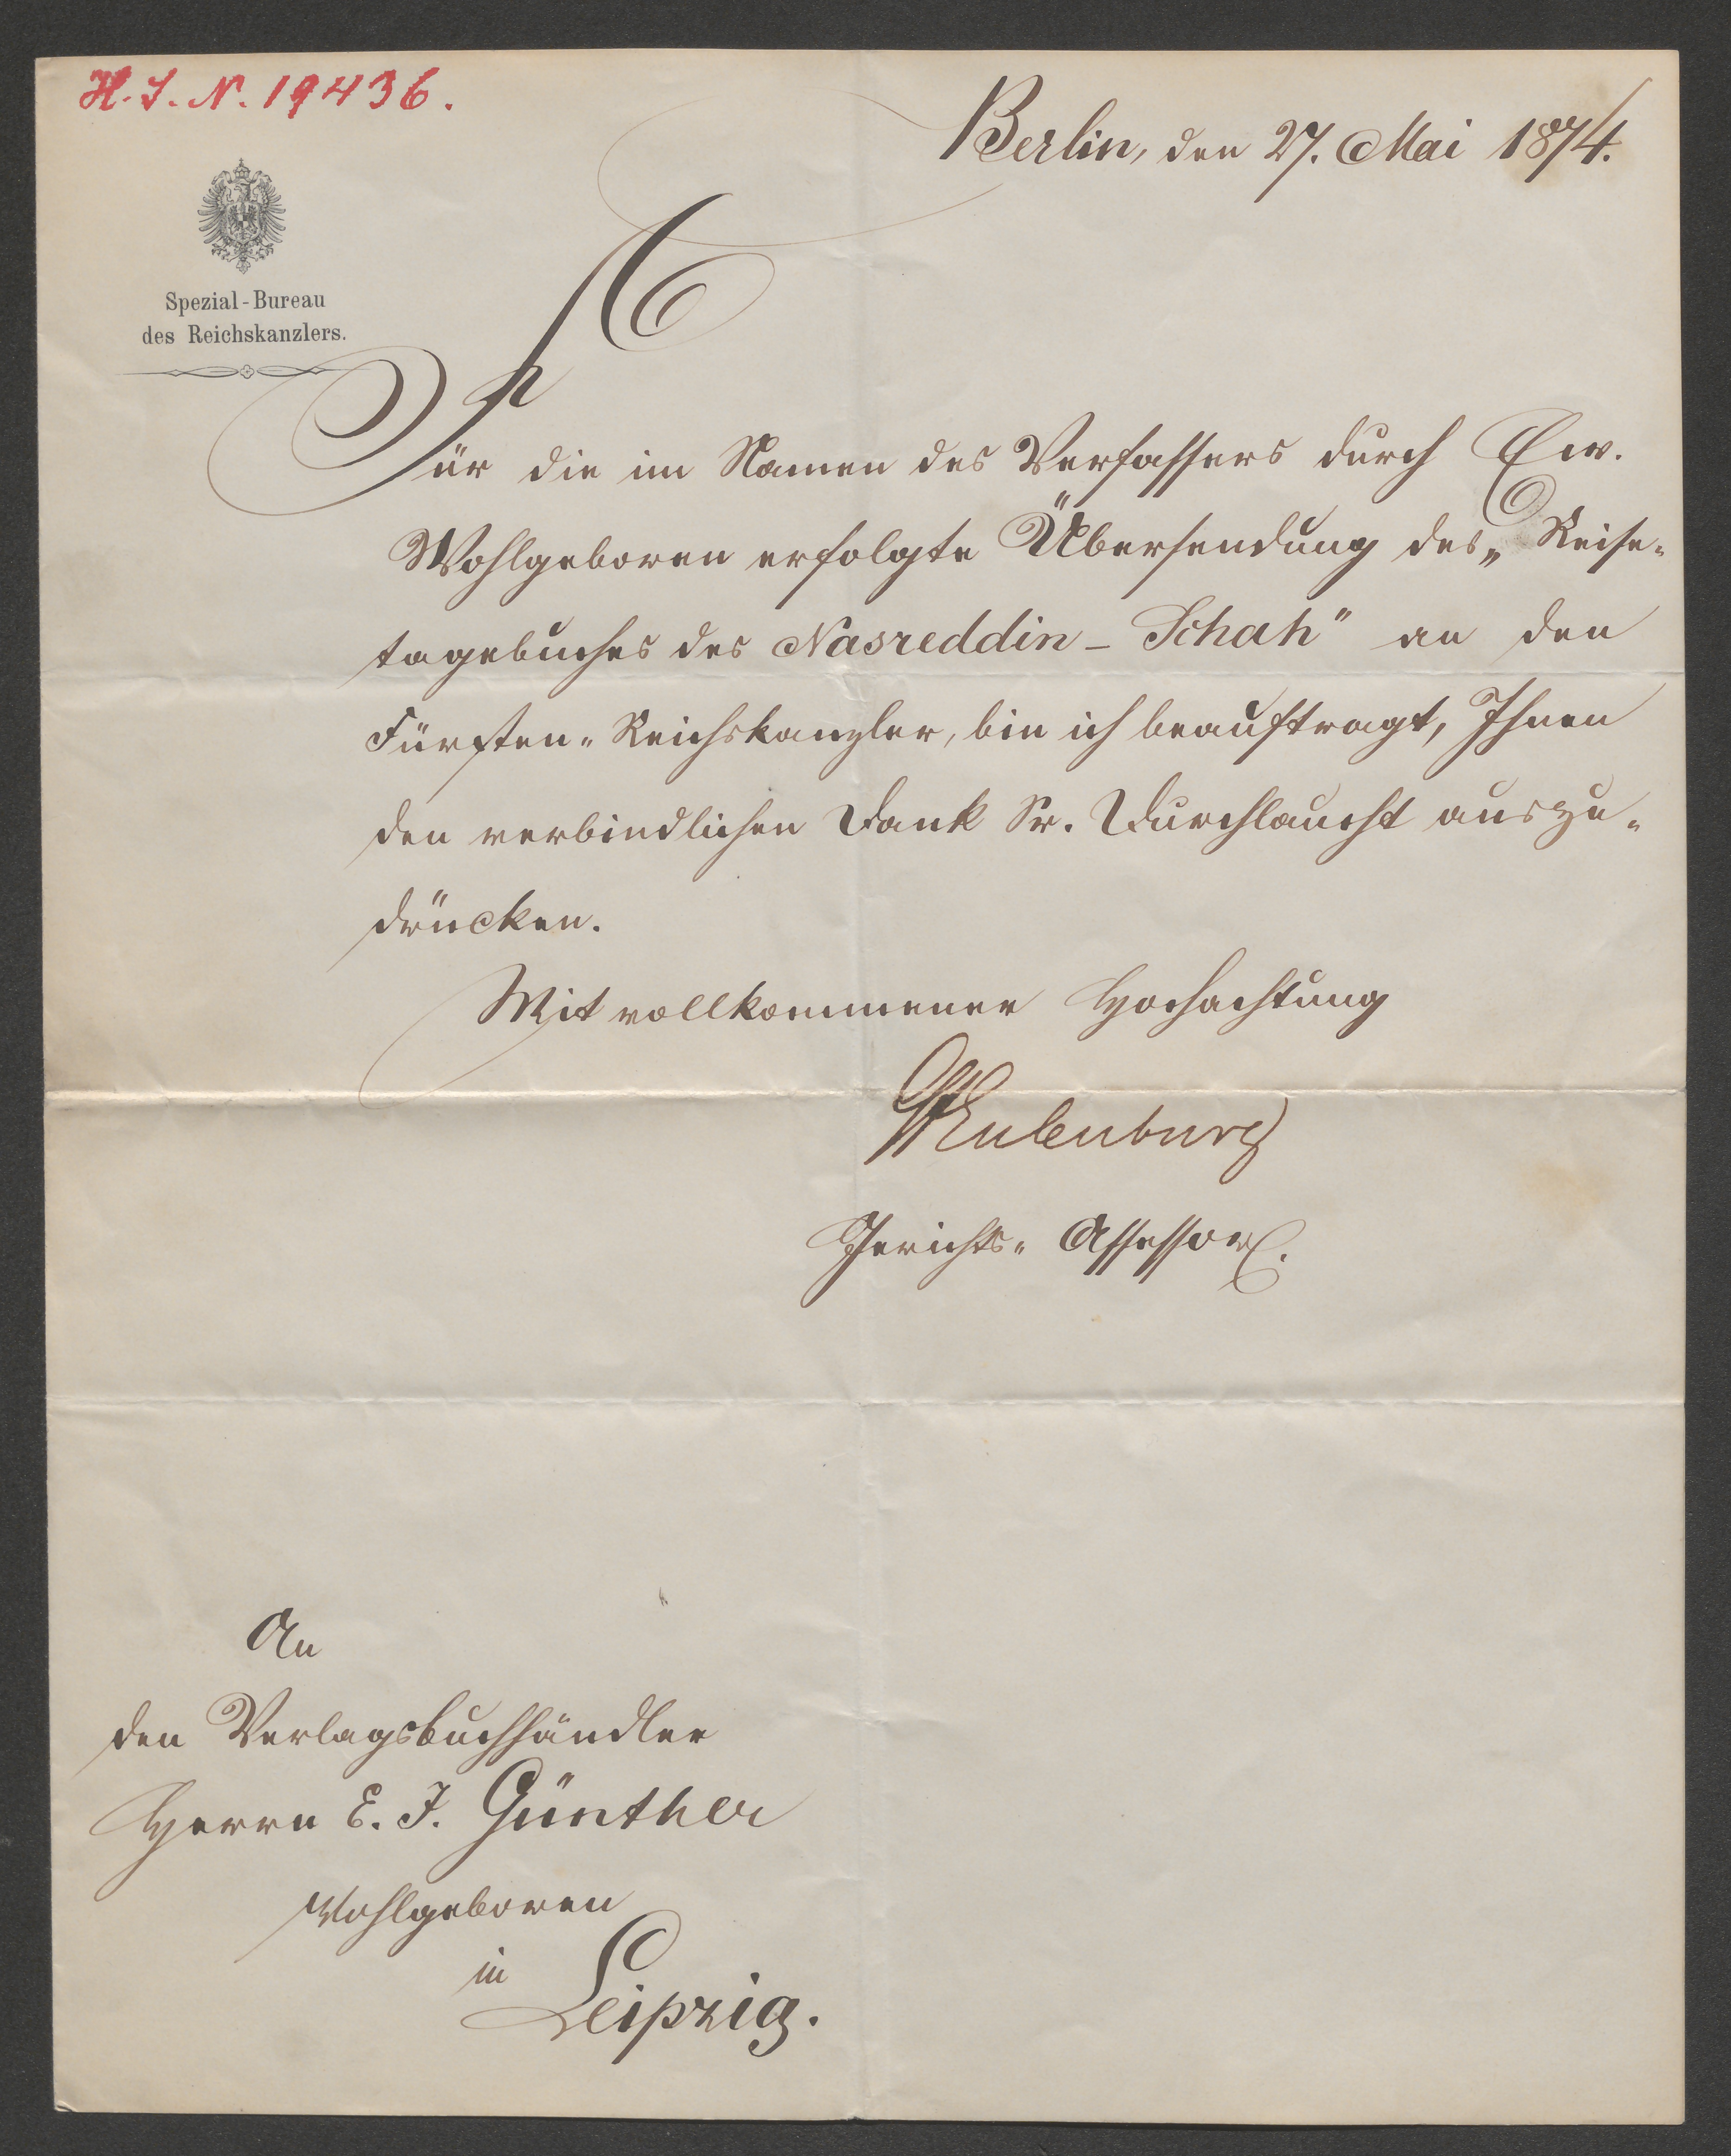 H. I. N. 19436.
Berlin, den 27. Mai 1874.
Spezial-Bureau
des Reichskanzlers.
Für die im Namen des Verfassers durch Ew.
Wohlgeboren erfolgte Übersendung des „Reise-
tagebuches des Nasreddin-Schah" an den
Fürsten-Reichskanzler, bin ich beauftragt, Ihnen
den verbindlichen Dank Sr. Durchlaucht auszu-
drücken.
Mit vollkommener Hochachtung
Eulenburg
Gerichts-Assessor.
An
den Verlagsbuchhändler
Herrn E. J. Günther
Wohlgeboren
in
Leipzig.